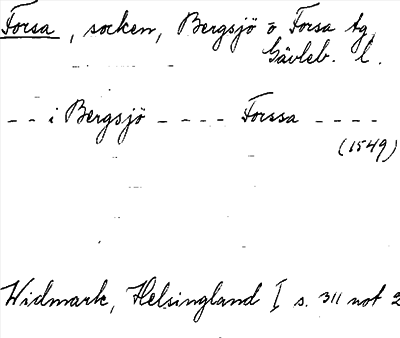 Forsa, socken, Bergsjö o Forsa tg,
Gävleb. l.
-- i Bergsjö ---- Forssa ----
(1549)
Widmark, Helsingland I s. 311 not 2